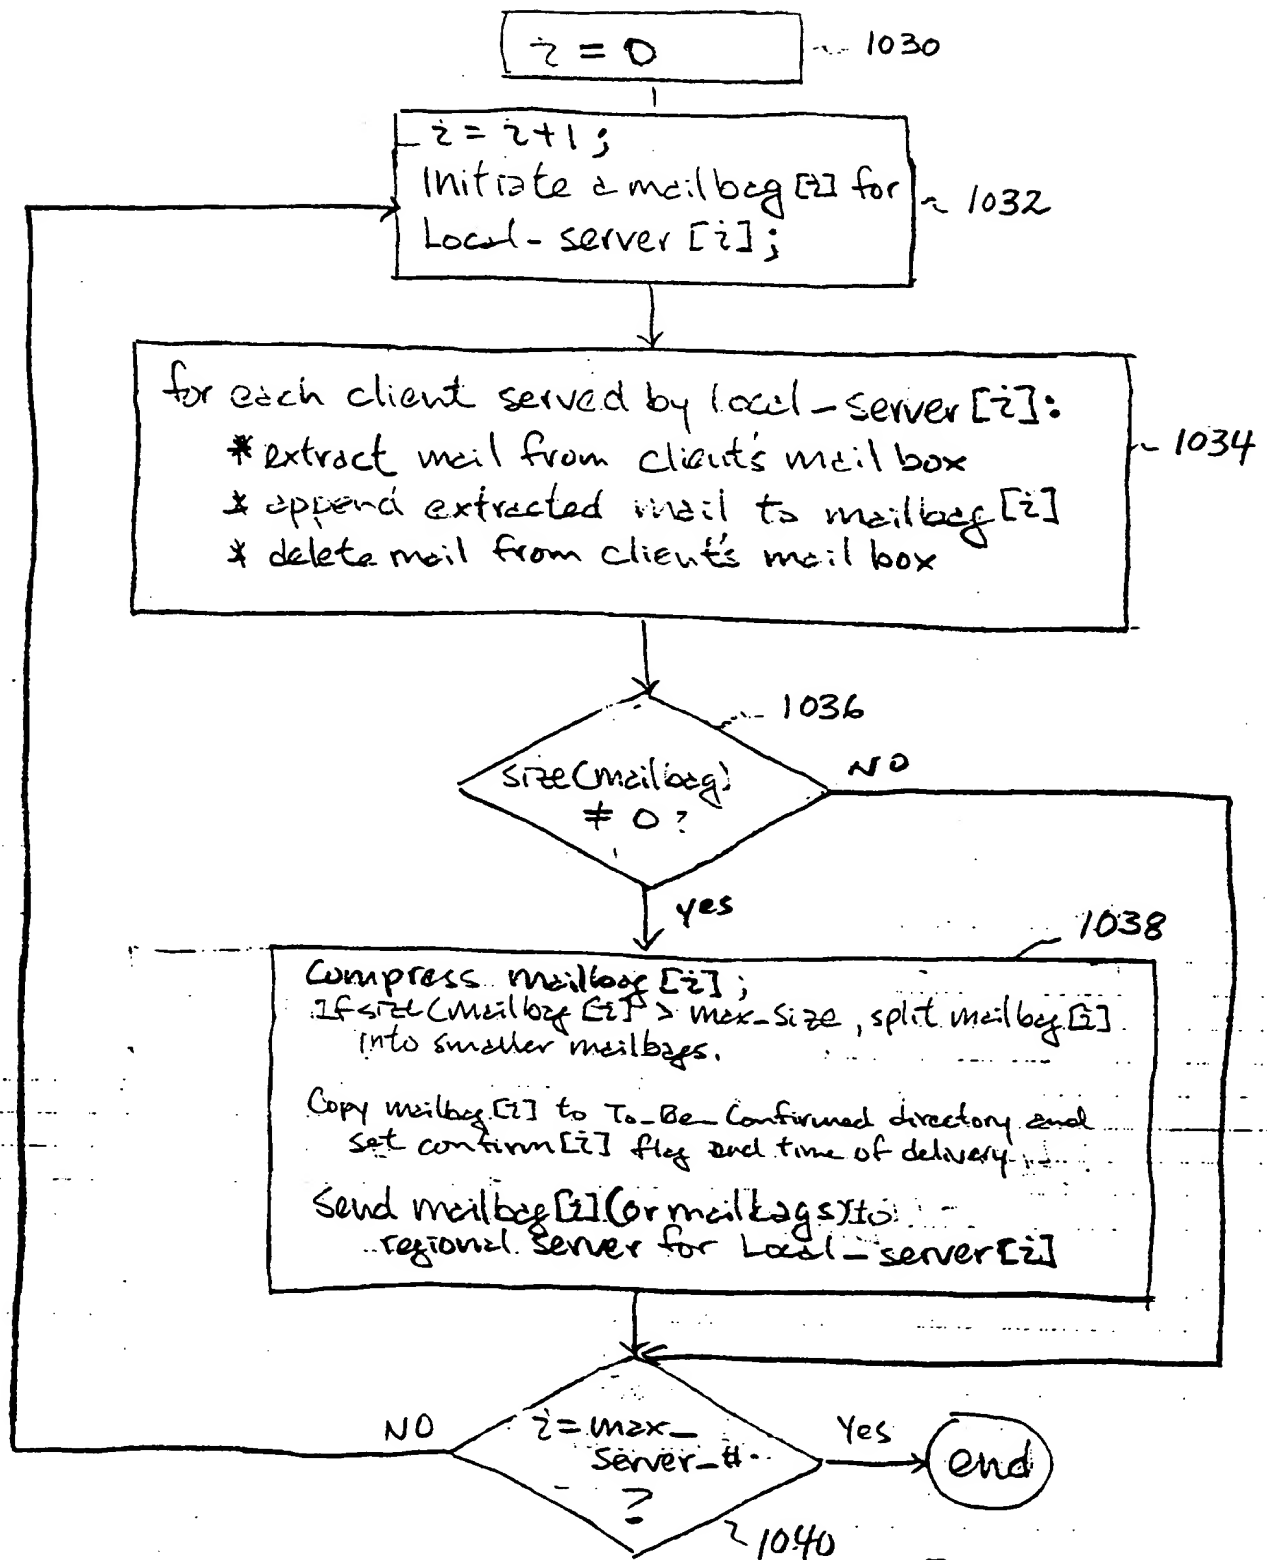 i = 0
1030
i = i+1 ;
Initiate a mailbag [i] for
Local-server [i];
1032
for each client served by local-server [i]:
* extract mail from client's mail box
* append extracted mail to mailbag [i]
* delete mail from client's mail box
1034
1036
size(mailbag)
≠ 0 ?
NO
yes
1038
Compress mailbag [i] ;
If size(mailbag [i]) > max_size, split mailbag [i]
into smaller mailbags.
Copy mailbag [i] to To_Be_Confirmed directory and
set confirm [i] flag and time of delivery.
Send mailbag [i] (or mailbags) to
regional server for Local_server [i]
NO
i = max_
server_#
?
Yes
end
1040